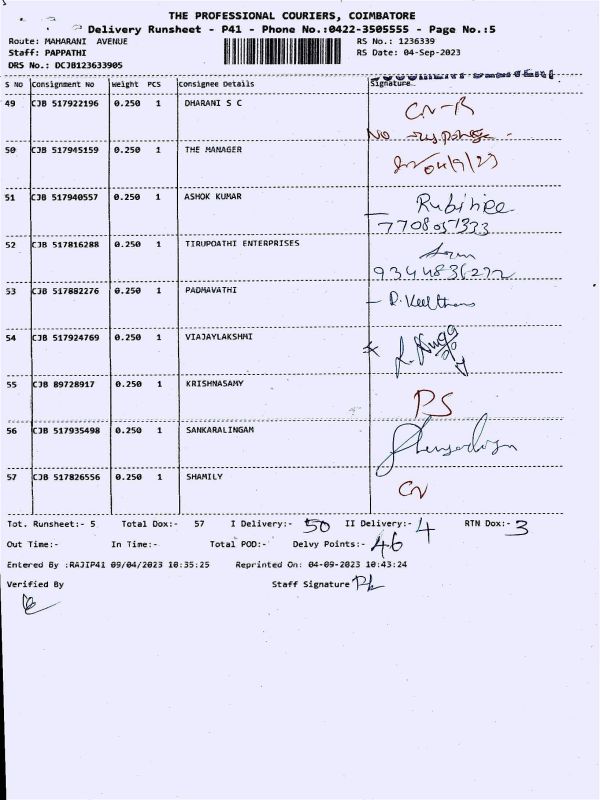 THE PROFESSIONAL COURIERS, COIMBATORE
Delivery Runsheet - P41 - Phone No.:0422-3505555 - Page No.:5
Route: MAHARANI AVENUE RS No.: 1236339
Staff: PAPPATHI RS Date: 04-Sep-2023
DRS No.: DCJB123633905
S NO Consignment No Weight PCS Consignee Details Signature
49 CJB 517922196 0.250 1 DHARANI S C CN-R
No response
50 CJB 517945159 0.250 1 THE MANAGER 04/9/23
51 CJB 517940557 0.250 1 ASHOK KUMAR
7708051333
52 CJB 517816288 0.250 1 TIRUPOATHI ENTERPRISES
53 CJB 517882276 0.250 1 PADMAVATHI
54 CJB 517924769 0.250 1 VIAJAYLAKSHMI
55 CJB 89728917 0.250 1 KRISHNASAMY PS
56 CJB 517935498 0.250 1 SANKARALINGAM
57 CJB 517826556 0.250 1 SHAMILY CN
Tot. Runsheet:- 5 Total Dox:- 57 I Delivery:- 50 II Delivery:- 4 RTN Dox:- 3
Out Time:- In Time:- Total POD:- Delvy Points:- 46
Entered By :RAJIP41 09/04/2023 10:35:25 Reprinted On: 04-09-2023 10:43:24
Verified By Staff Signature